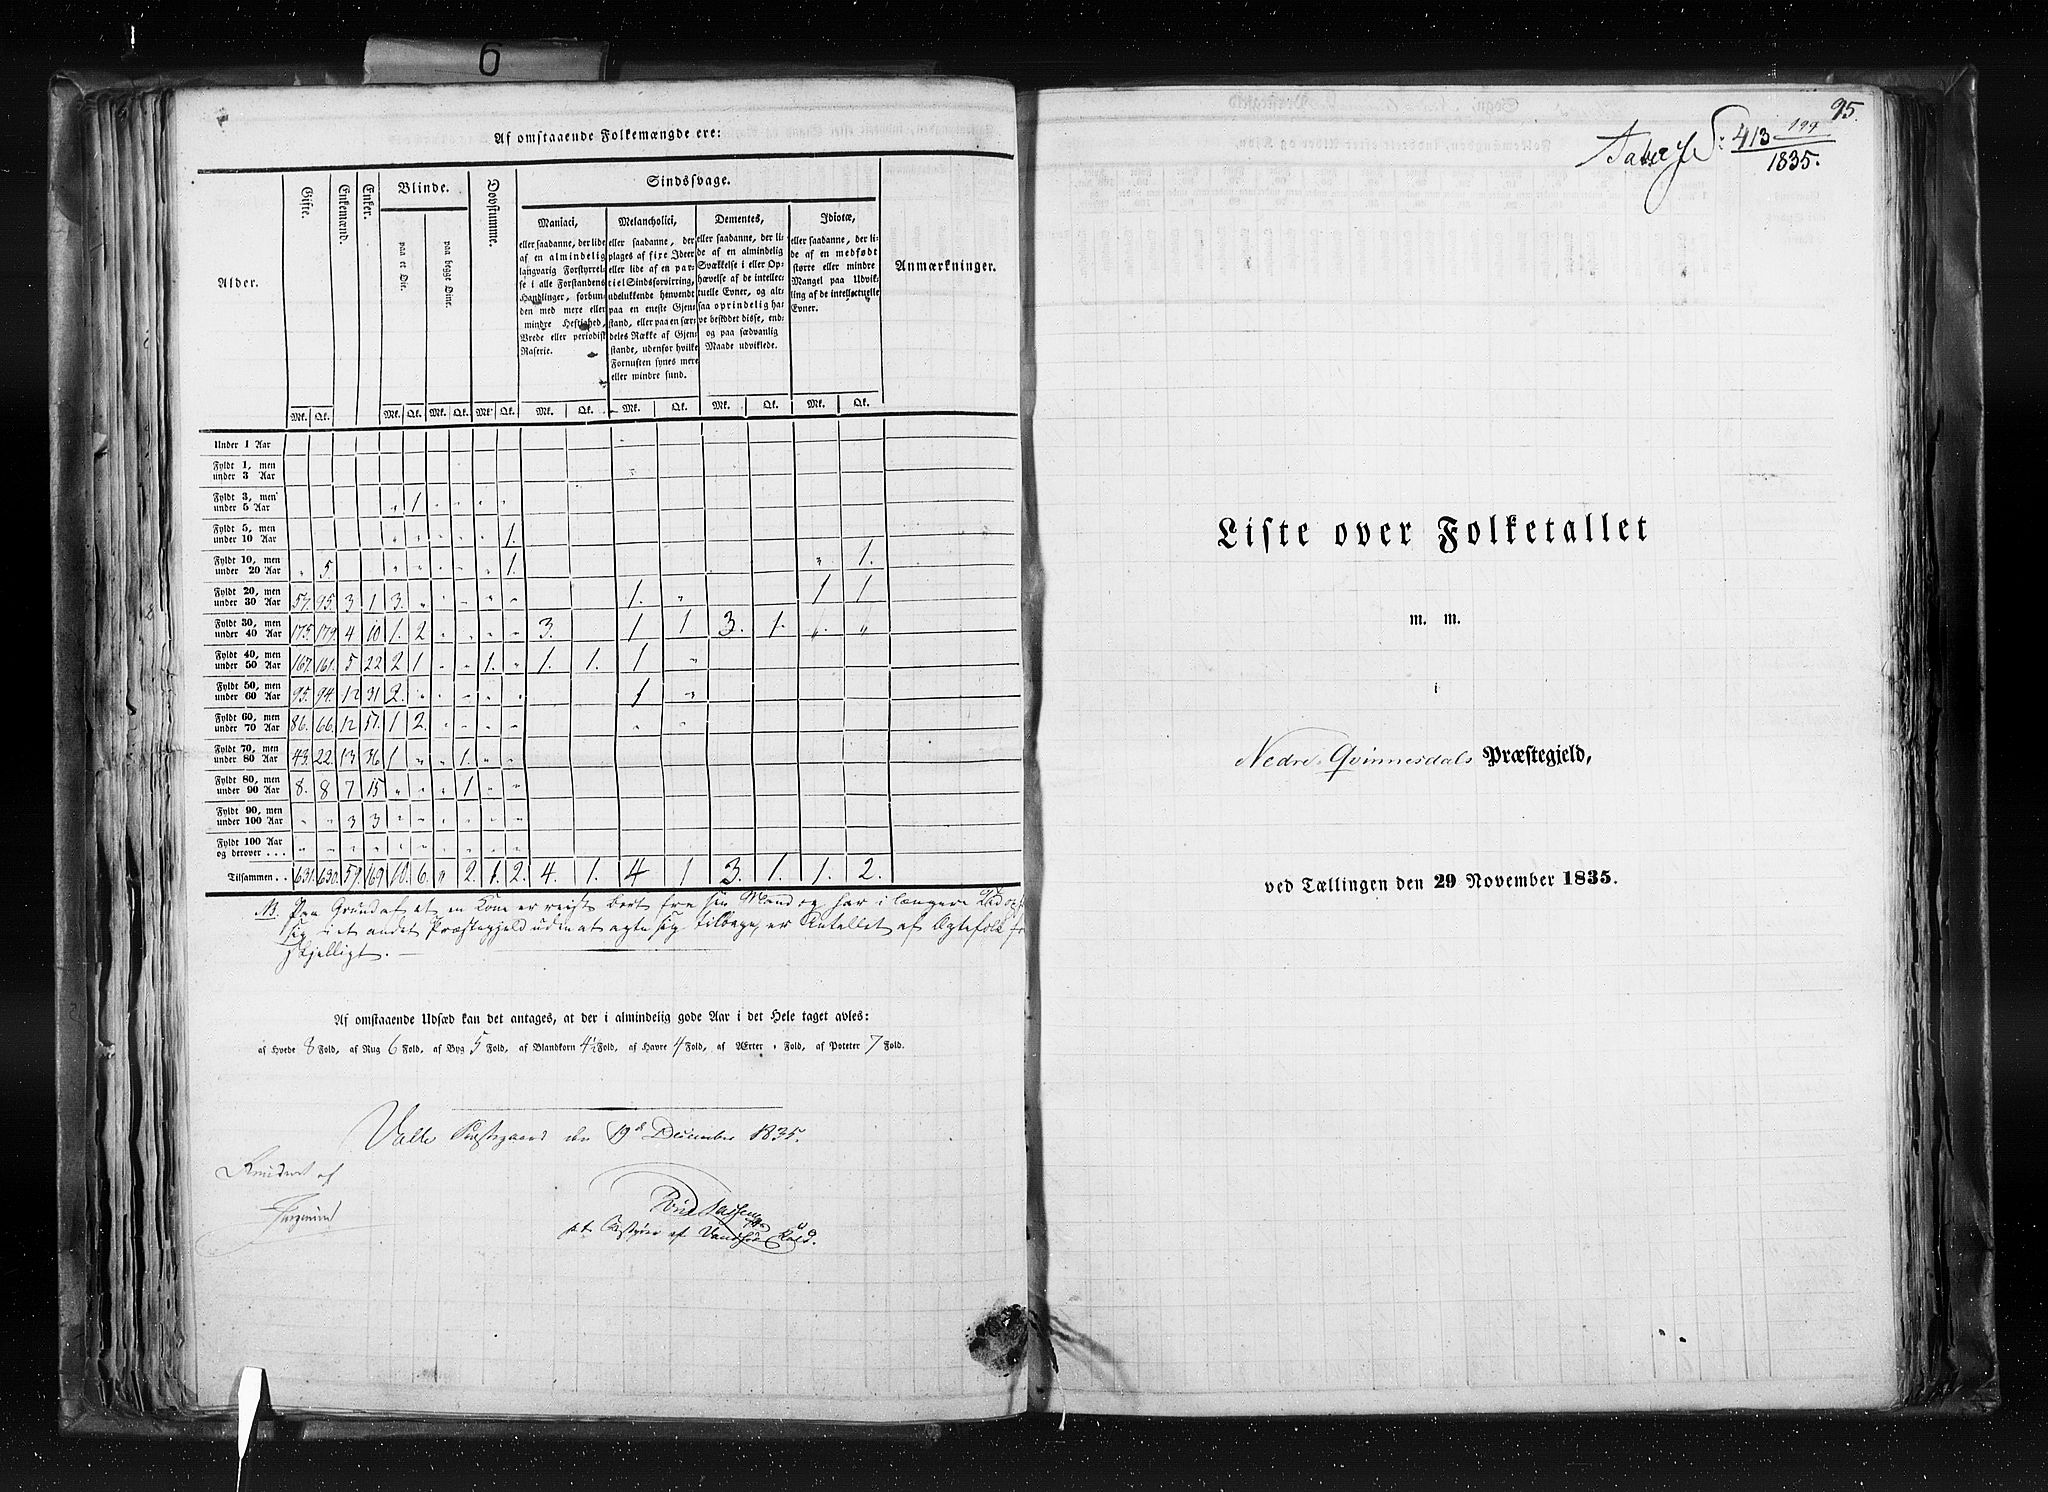 6
Af omstaaende Folkemængde ere:
Alder.
Gifte.
Enkemænd.
Enker.
Blinde.
paa et Øie.
paa begge Øine.
Døvstumme.
Sindssvage.
Maniaci,
eller saadanne, der lide
af en almindelig
langvarig Forstyrrel-
se i alle Forstandens
Handlinger, forbun-
den med mere eller
mindre Heftighed,
Vrede eller periodisk
Raserie.
Melancholici,
eller saadanne, der
plages af fixe Ideer
eller lide af en par-
tiel Sindsforvirring,
udelukkende henvendt
paa en eneste Gjen-
stand, eller paa en sær-
deles Række af Gjen-
stande, udenfor hvilke
Fornuften synes mere
eller mindre sund.
Dementes,
eller saadanne, der li-
de af en almindelig
Svækkelse i eller Op-
hævelse af de intellec-
tuelle Evner, og alt-
saa oprindelig ha-
ve besiddet disse, end-
og paa sædvanlig
Maade udviklede.
Idiotæ,
eller saadanne, der li-
de af en medfødt
større eller mindre
Mangel paa Udvik-
ling af de intellectuelle
Evner.
Anmærkninger.
Mk. Qk. Mk. Qk. Mk. Qk. Mk. Qk. Mk. Qk. Mk. Qk. Mk. Qk. Mk. Qk.
Under 1 Aar
Fyldt 1, men
under 3 Aar
Fyldt 3, men
under 5 Aar " 1 " " " "
Fyldt 5, men
under 10 Aar " " " " " 1.
Fyldt 10, men
under 20 Aar " 5. " " " " " 1. " 1.
Fyldt 20, men
under 30 Aar 57. 95. 3 1 3. " " " " " 1. " 1 1
Fyldt 30, men
under 40 Aar 175. 179. 4 10 1. 2 " " " " 3. 1 1 3. 1. " "
Fyldt 40, men
under 50 Aar 167. 161. 5 22 2 1 " " 1. " 1. 1. 1 "
Fyldt 50, men
under 60 Aar 95. 94. 12 31 2. " " " " " 1 "
Fyldt 60, men
under 70 Aar 86. 66. 12 51. 1 2. " " " " " "
Fyldt 70, men
under 80 Aar 43. 22. 13 36 1 " " 1. " "
Fyldt 80, men
under 90 Aar 8. 8 7 15 " " " 1 " "
Fyldt 90, men
under 100 Aar " " 3 3 " " " " " "
Fyldt 100 Aar
og derover . . . " " " " " " " " " "
Tilsammen . . 631. 630. 59. 169 10. 6. " 2. 1. 2. 4. 1. 4 1 3. 1. 1. 2.
NB. Paa Grund af at en Kone er reist bort fra sin Mand og har i længere Tid
sig i et andet Præstegjeld uden at agte sig tilbage, er Antallet af Ægtefolk
skjelligt. —
Af omstaaende Udsæd kan det antages, at der i almindelig gode Aar i det Hele taget avles:
af Hvede 8 Fold, af Rug 6 Fold, af Byg 5 Fold, af Blandkorn 4½ Fold, af Havre 4 Fold, af Ærter " Fold, af Poteter 7 Fold.
Valle Præstegaard den 19d December 1835.
Revideret af
af Vandsø Kald.
95.
Tabel S: 413 194/1835.
Liste over Folketallet
m. m.
i
Nedre Qvinnesdals Præstegjeld,
ved Tællingen den 29 November 1835.